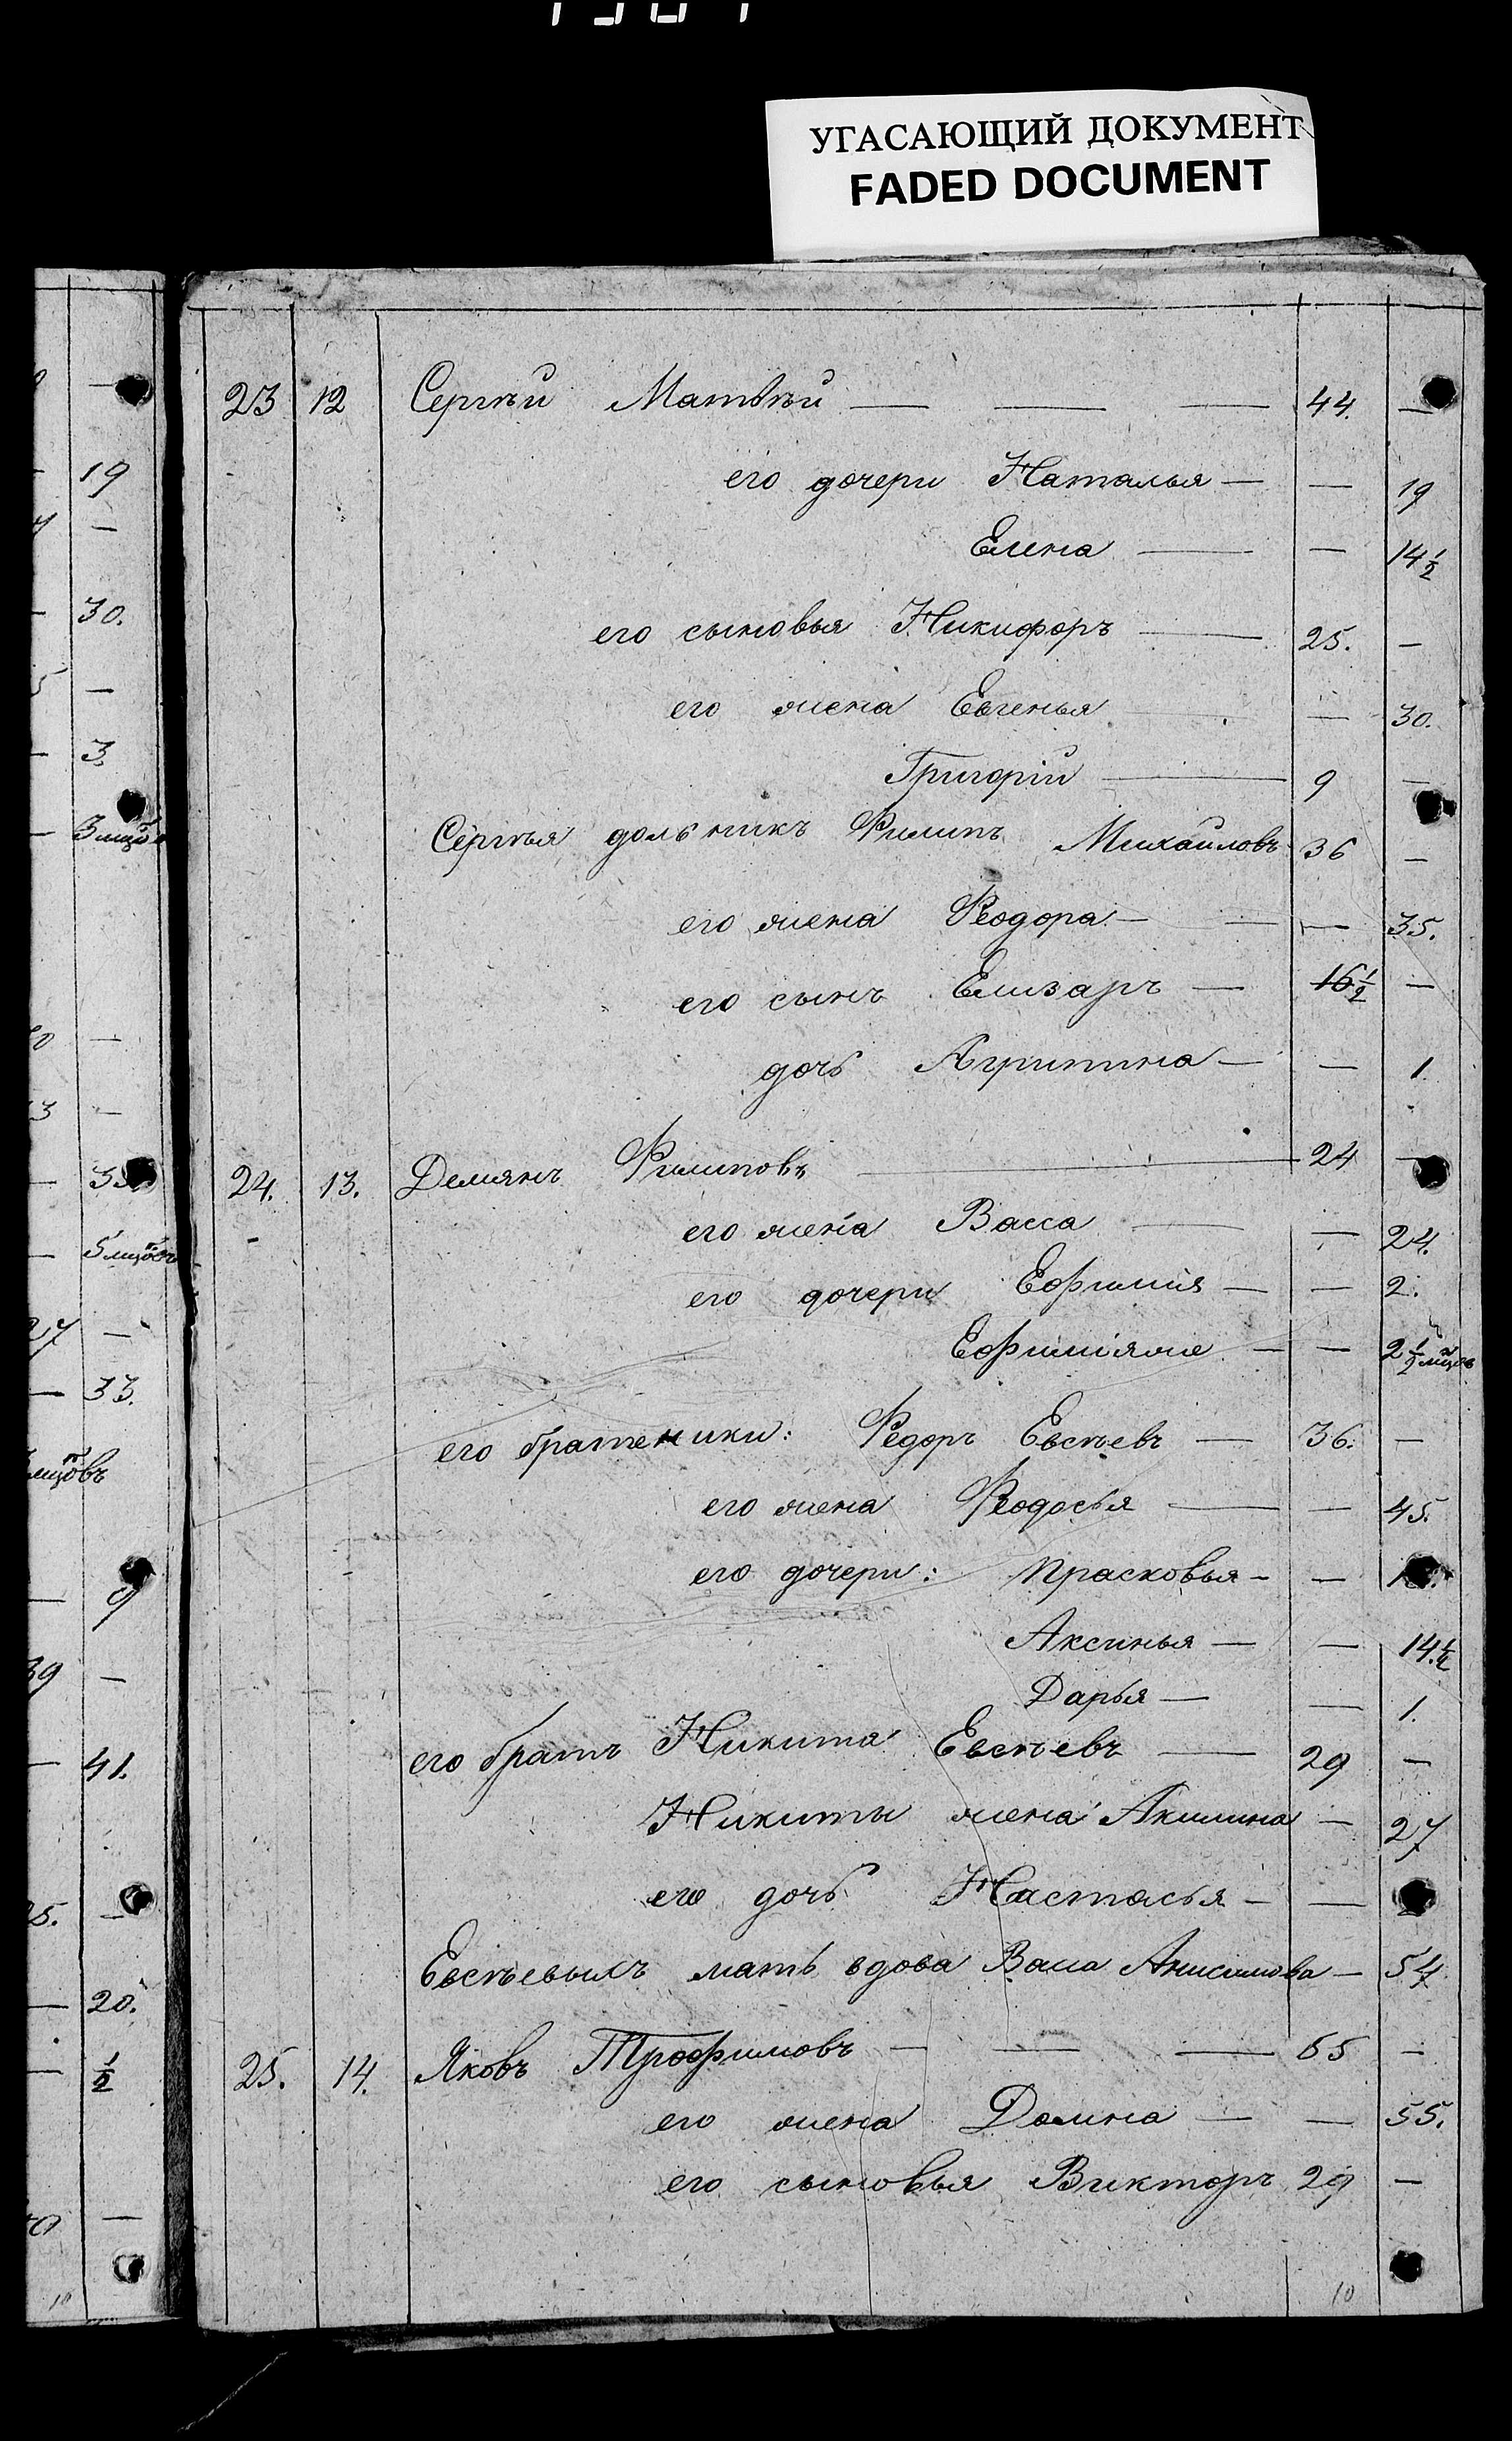 УГАСАЮЩИЙ ДОКУМЕНТ
FADED DOCUMENT
23 12 Сергѣй Матвѣй — — — 44. —
его дочери Наталья — — 19
Елена — — 14 1/2
его сыновья Никифоръ — 25. —
его жена Евгенья — 30.
Григорій — 9 —
Сергѣя дольникъ Филипъ Михайловъ 36 —
его жена Феодора — — — 35.
его сынъ Елизаръ — 16 1/2 —
дочь Агрипина — — 1.
24. 13. Демянъ Филиповъ — 24 —
его жена Васса — — 24.
его дочери Ефимія — — 2.
Ефиміяже — — 2 1/2 мцов
его братеники: Федоръ Евсѣевъ — 36. —
его жена Феодосья — — 45.
его дочери: Прасковья — —
Аксинья — — 14.
Дарья — — 1.
его братъ Никита Евсѣевъ — 29 —
Никиты жена Акилина — 27
его дочь Настасья — —
Евсѣевыхъ мать вдова Васа Анисимова — 54
25. 14. Яковъ Трофимовъ — — — 65 —
его жена Домна — — 55.
его сыновья Викторъ 29 —
10
19
—
30.
—
3.
3 мцов
—
—
5 мцовъ
27 —
— 33.
мцовъ
— 9
39 —
— 41.
— 20.
— 1/2
—
10